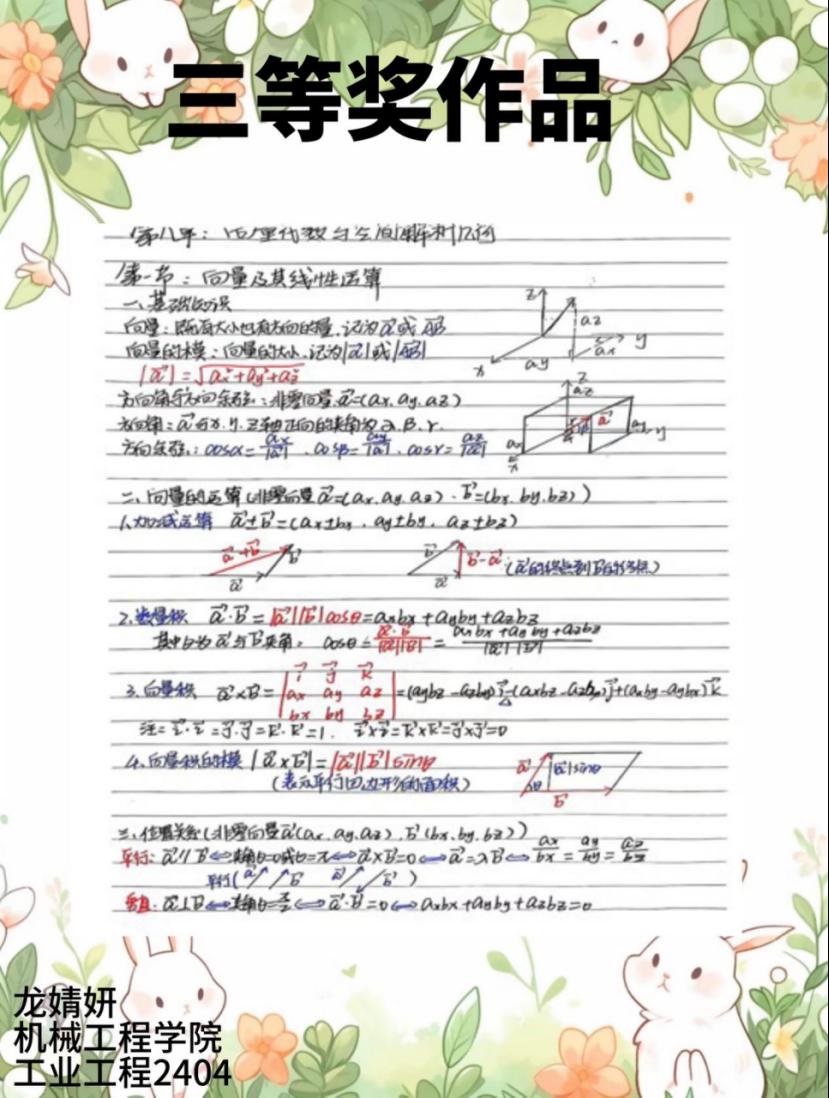 三等奖作品
第八章：向量代数与空间解析几何
第一节：向量及其线性运算
一、基础知识
向量：既有大小也有方向的量，记为a⃗或AB⃗
向量的模：向量的大小，记为|a⃗|或|AB⃗|
|a⃗|=√(ax²+ay²+az²)
z
az
y
ax
ay
x
方向角与方向余弦：非零向量a⃗=(ax,ay,az)
方向角：a⃗与x,y,z轴正向的夹角为α,β,γ.
方向余弦：cosα=ax/|a⃗|，cosβ=ay/|a⃗|，cosγ=az/|a⃗|
z
az
a⃗
ax
ay
y
x
二、向量的运算(非零向量a⃗=(ax,ay,az)，b⃗=(bx,by,bz))
1.加减运算 a⃗±b⃗=(ax±bx，ay±by，az±bz)
a⃗+b⃗ b⃗ a⃗
b⃗ b⃗-a⃗ a⃗ (a⃗的终点到b⃗的终点)
2.数量积 a⃗·b⃗=|a⃗||b⃗|cosθ=axbx+ayby+azbz
其中θ为a⃗与b⃗夹角，cosθ=a⃗·b⃗/|a⃗||b⃗|=axbx+ayby+azbz/|a⃗||b⃗|
i⃗ j⃗ k⃗
3.向量积 a⃗×b⃗=|ax ay az|=(aybz-azby)i⃗-(axbz-azbx)j⃗+(axby-aybx)k⃗
bx by bz
注：i⃗·i⃗=j⃗·j⃗=k⃗·k⃗=1. i⃗×i⃗=k⃗×k⃗=j⃗×j⃗=0
4.向量积的模 |a⃗×b⃗|=|a⃗||b⃗|sinθ
(表示平行四边形的面积)
a⃗ |a⃗|sinθ
θ
b⃗
三、位置关系(非零向量a⃗(ax,ay,az)，b⃗(bx,by,bz))
平行：a⃗∥b⃗⇔夹角θ=0或θ=π⇔a⃗×b⃗=0⇔a⃗=λb⃗⇔ax/bx=ay/by=az/bz
平行(a⃗ b⃗ a⃗ b⃗)
垂直：a⃗⊥b⃗⇔夹角θ=π/2⇔a⃗·b⃗=0⇔axbx+ayby+azbz=0
龙婧妍
机械工程学院
工业工程2404